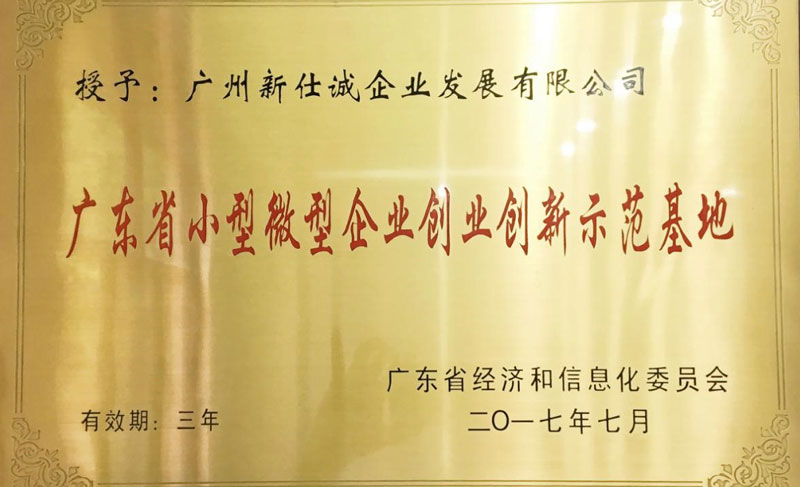 授予：广州新仕诚企业发展有限公司
广东省小型微型企业创业创新示范基地
广东省经济和信息化委员会
有效期：三年
二〇一七年七月